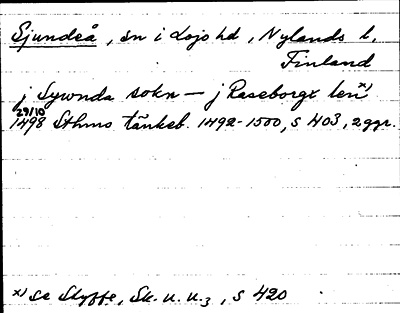 Sjundeå, sn i Lojo hd, Nylands l.
Finland
j Sywnda sokn — j Raseborgx len x)
29/10
1498 Sthms tänkeb. 1492-1500, s 403, 2 ggr.
x) se Styffe, Sk. u. u. 3, s 420